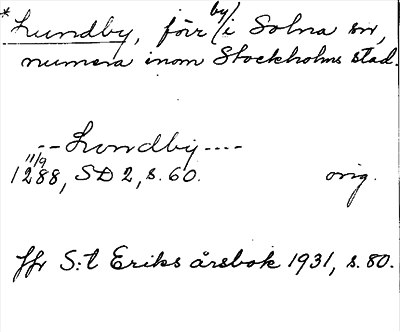 * Lundby, förr by i Solna sn,
numera inom Stockholms stad.
-- Lundby ----
11/9
1288, SD 2, s. 60. orig.
Jfr S:t Eriks årsbok 1931, s. 80.